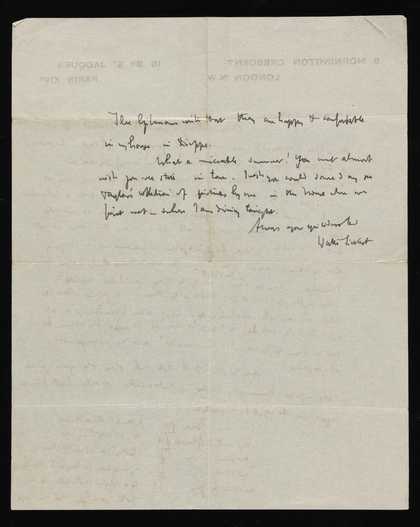 The       write that they are happy & comfortable
in my house in Dieppe.
What a miserable summer! You must almost
wish you were still in town. I wish you could some day see
           collection of pictures by me in the house where we
first met & where I am dining tonight.
Always yours sincerely
Walter Sickert
6 MORNINGTON CRESCENT
LONDON N.W.
PARIS XIV